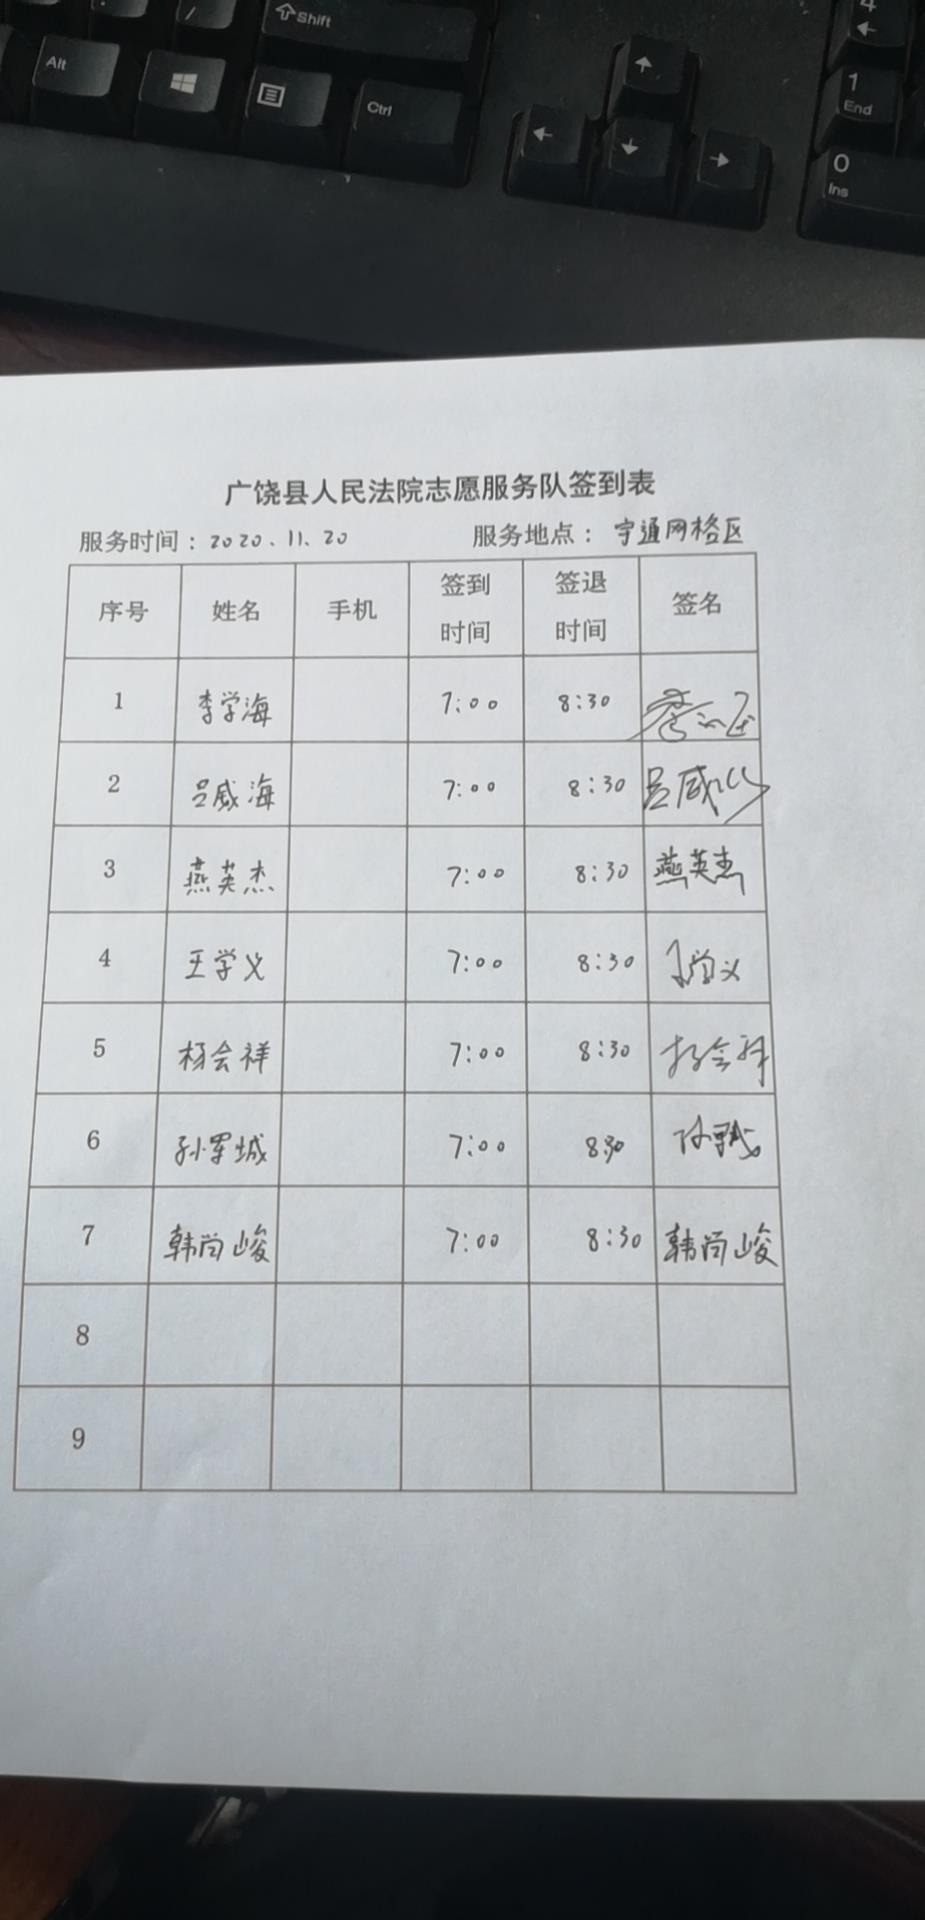 /
Shift
4
Alt
Ctrl
1
End
0
Ins
广饶县人民法院志愿服务队签到表
服务时间：2020.11.20 服务地点：宇通网格区
序号 姓名 手机 签到时间 签退时间 签名
1 李学海 7:00 8:30
2 吕威海 7:00 8:30
3 燕英杰 7:00 8:30 燕英杰
4 王学义 7:00 8:30 王学义
5 杨会祥 7:00 8:30 杨会祥
6 孙军城 7:00 8:30
7 韩尚峻 7:00 8:30 韩尚峻
8
9